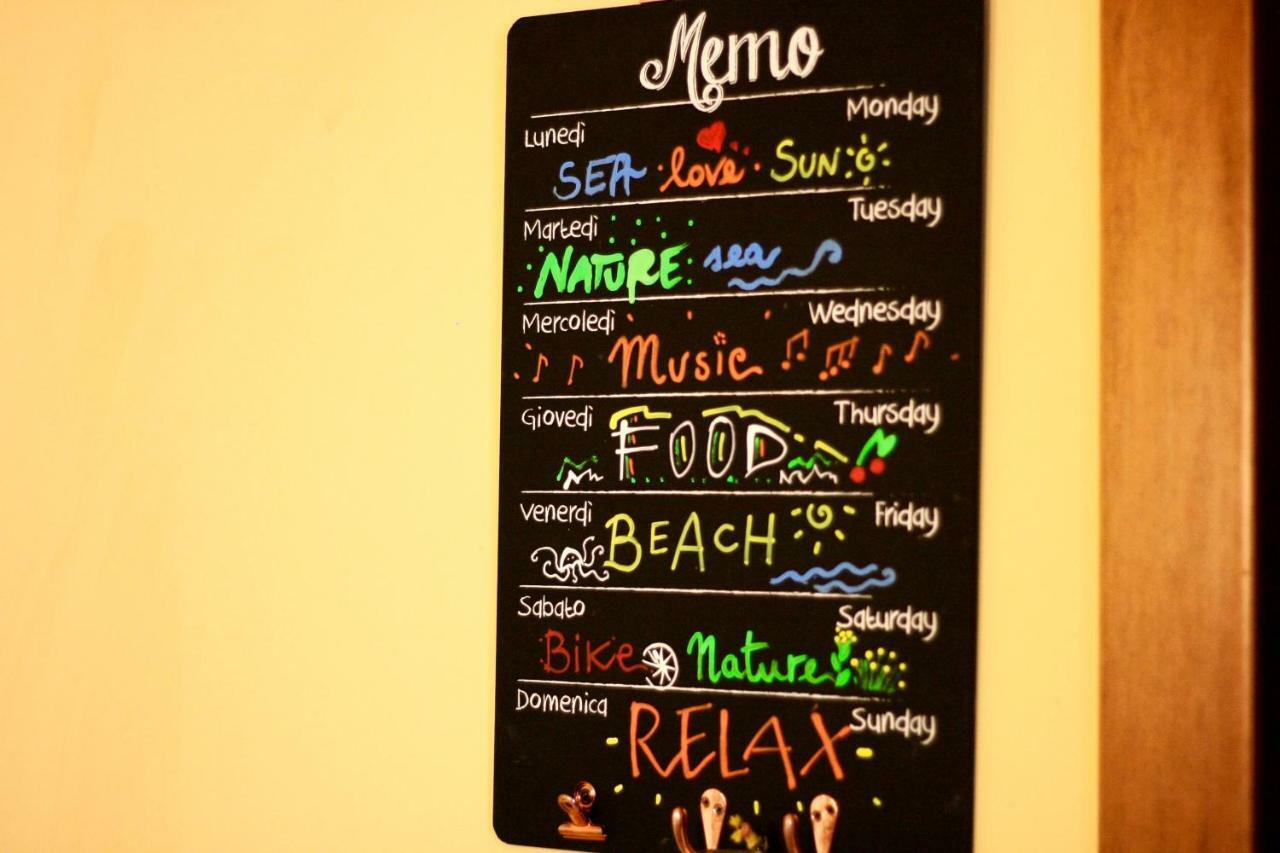 Memo
Lunedì Monday
SEA love SUN
Martedì Tuesday
NATURE sea
Mercoledì Wednesday
Music
Giovedì Thursday
FOOD
Venerdì Friday
BEACH
Sabato Saturday
Bike Nature
Domenica Sunday
RELAX